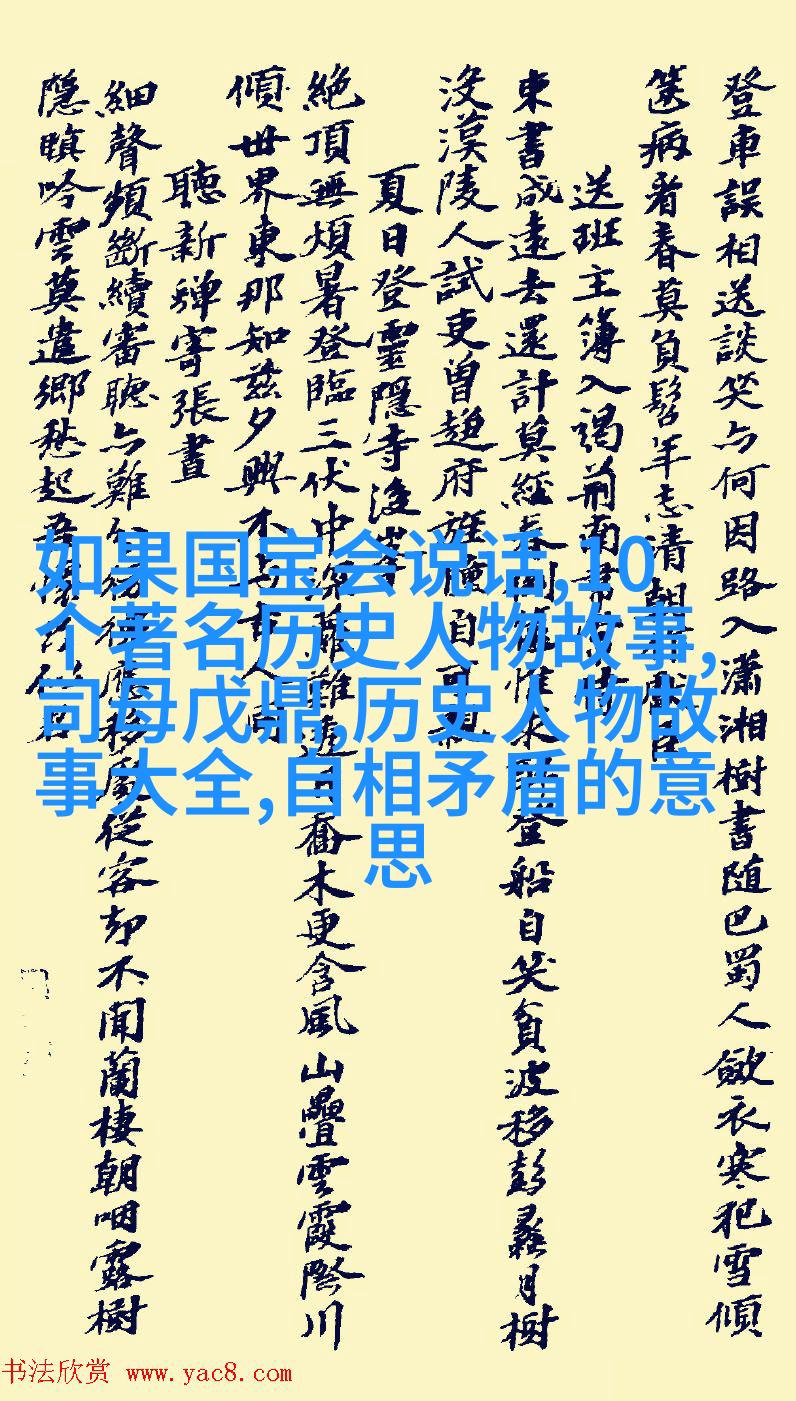 登車誤相送談笑与何因路入瀟湘樹書随巴蜀人斂衣寒犯雪傾
篋病看春莫負髫年志清朝
送班主簿入謁荊南
東書成遠去還計莫經春登船自笑貧波移彭蠡月樹
没漢陵人試吏曾趋府旌
夏日登靈隱寺後峰
絶頂無煩暑登臨三伏中深喬木更含風山疊雲霞際川
傾世界東那知茲夕興不与古人同
聽新蟬寄張晝
細聲頻斷續審聽与難分從容却不聞蘭棲朝咽露樹
隱暝吟雲莫遣鄉愁起吾
如果国宝会说话,10
个著名历史人物故事,
司母戊鼎,历史人物故
事大全,自相矛盾的意
思
书法欣赏 www.yac8.com